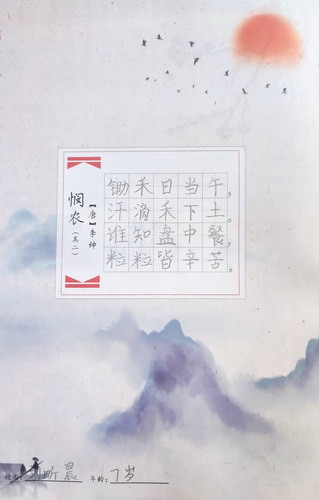 悯农
(其二)
【唐】李绅
锄禾日当午
汗滴禾下土
谁知盘中餐
粒粒皆辛苦
昕晨 年龄:7岁